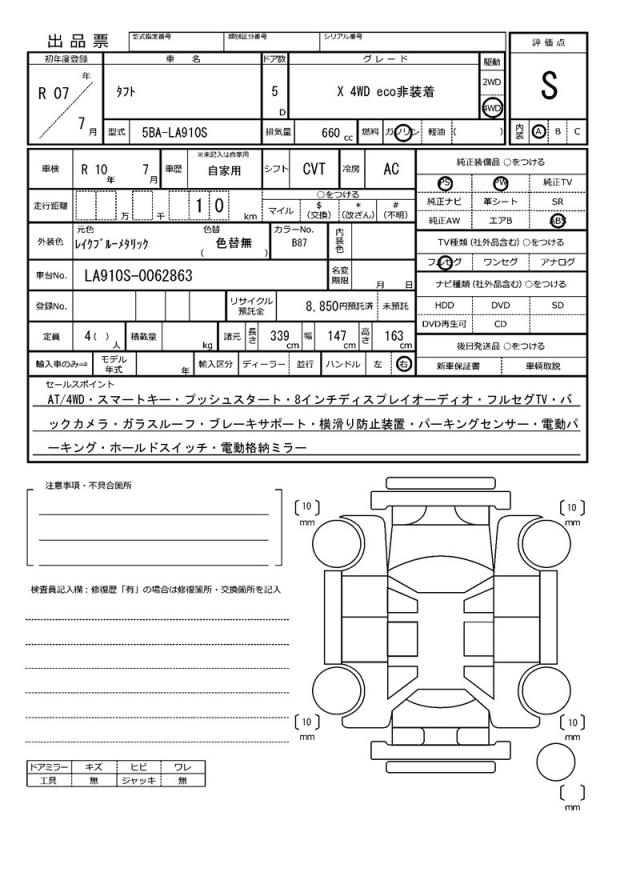 出品票
型式指定番号 類別区分番号 シリアル番号
評価点
S
初年度登録 車名 ドア数 グレード 駆動
R 07 年 7 月
タフト 5 D X 4WD eco非装着 2WD 4WD
型式 5BA-LA910S 排気量 660 cc 燃料 ガソリン 軽油 ( )
内装 A B C
車検 R 10 年 7 月 車歴 ※未記入は自家用 自家用 シフト CVT 冷房 AC
走行距離 万 千 1 0 km
○をつける
マイル $(交換) *(改ざん) #(不明)
外装色 元色 レイクブルーメタリック 色替 ( 色替無 ) カラーNo. B87 内装色
車台No. LA910S-0062863 名変期限 月 日
登録No. リサイクル預託金 8,850円預託済 未預託
定員 4( ) 人 積載量 kg 諸元 長さ 339 cm 幅 147 cm 高さ 163 cm
輸入車のみ⇒ モデル年式 年 輸入区分 ディーラー 並行 ハンドル 左 右
純正装備品 ○をつける
PS PW 純正TV
純正ナビ 革シート SR
純正AW エアB ABS
TV種類 (社外品含む) ○をつける
フルセグ ワンセグ アナログ
ナビ種類 (社外品含む) ○をつける
HDD DVD SD
DVD再生可 CD
後日発送品 ○をつける
新車保証書 車輌取説
セールスポイント
AT/4WD・スマートキー・プッシュスタート・8インチディスプレイオーディオ・フルセグTV・バ
ックカメラ・ガラスルーフ・ブレーキサポート・横滑り防止装置・パーキングセンサー・電動パ
ーキング・ホールドスイッチ・電動格納ミラー
注意事項・不具合箇所
検査員記入欄：修復歴「有」の場合は修復箇所・交換箇所を記入
[10] mm [10] mm
[10] mm [10] mm
[ ] mm
ドアミラー キズ ヒビ ワレ
工具 無 ジャッキ 無